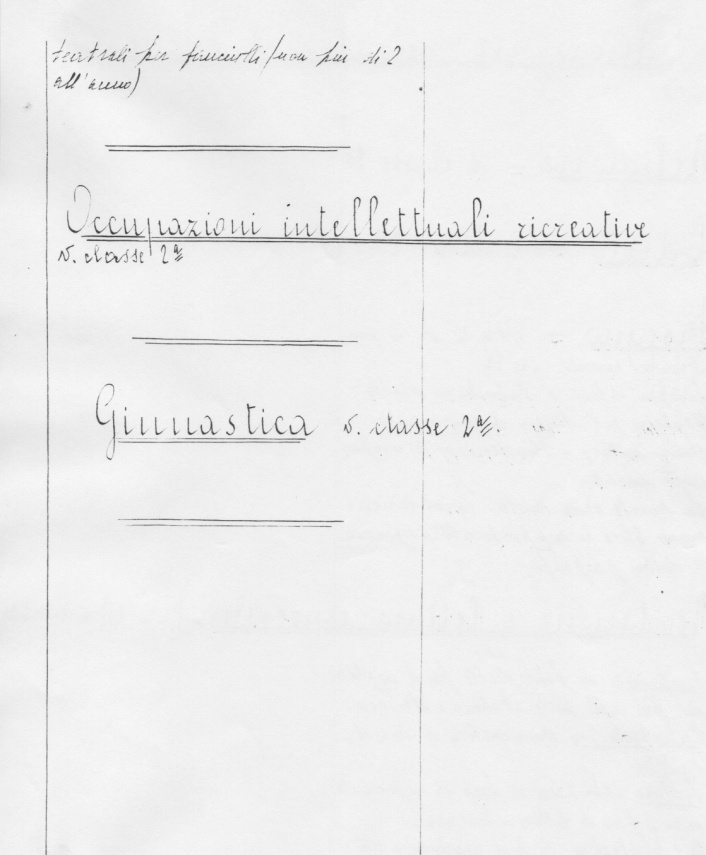 teatrali per fanciulli (non più di 2
all'anno)
Occupazioni intellettuali ricreative
v. classe 2ª
Ginnastica v. classe 2ª.